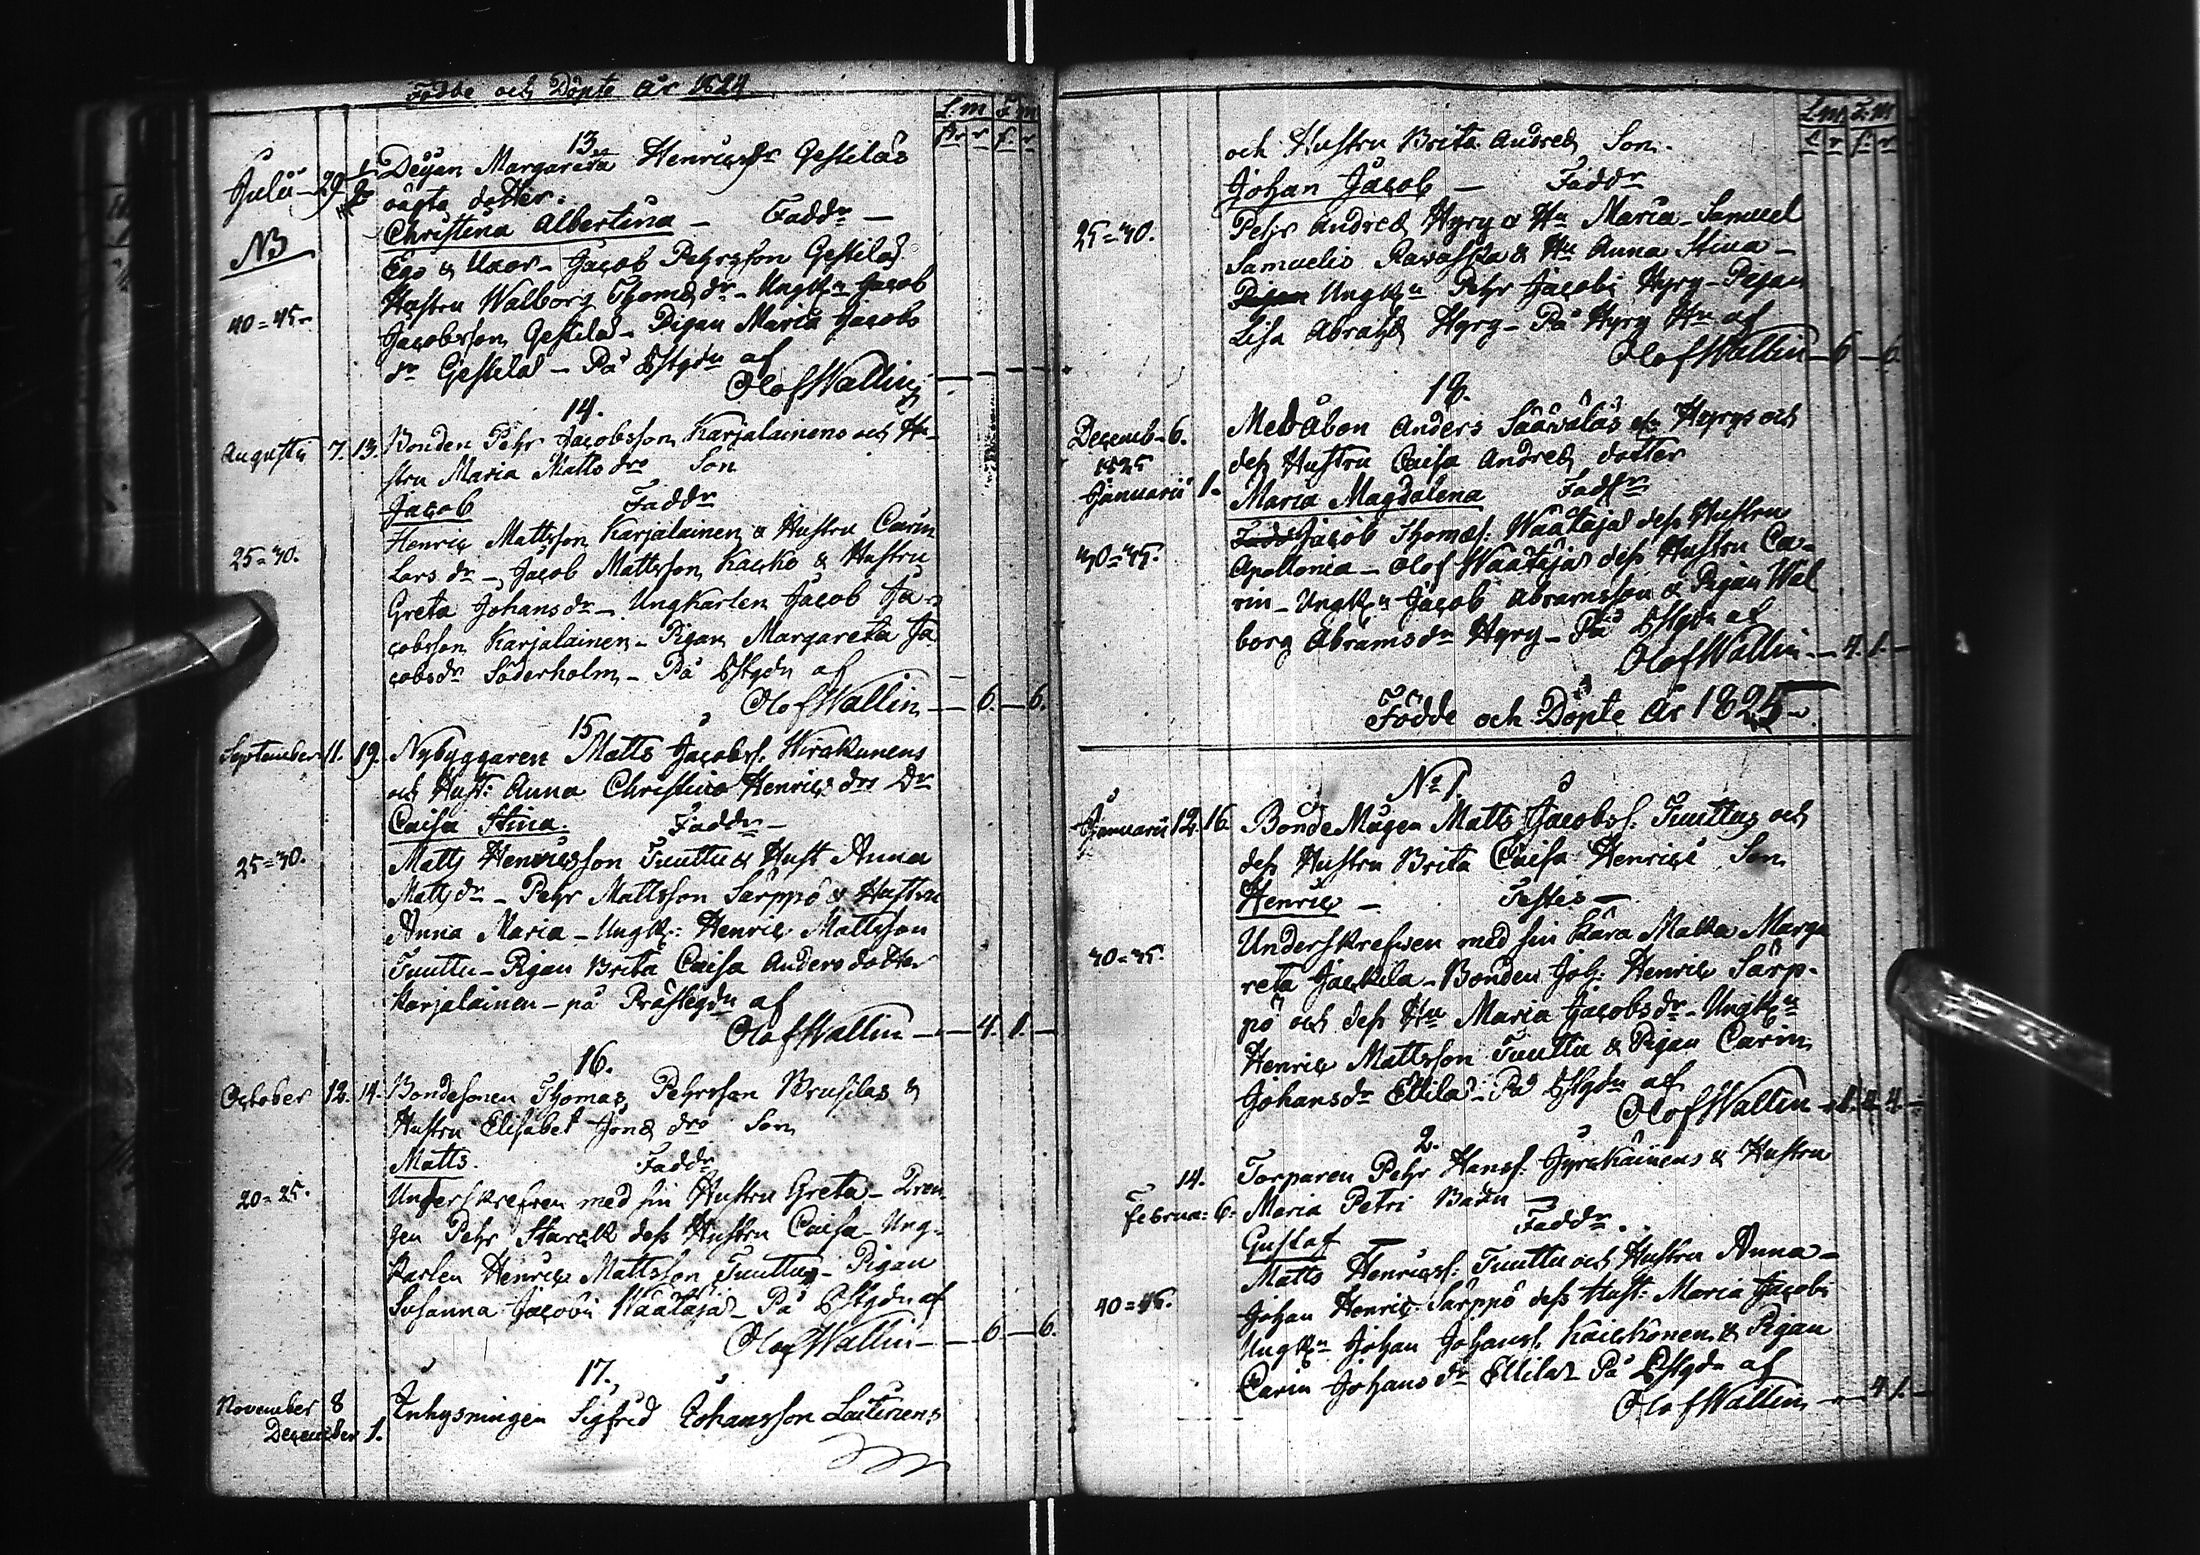 Födde och Döpte År 1824
L. m F m
13.
Julii 29
Deyan Margareta Henricsdr Gestilas
oägta dotter.
Christina Albertina – Faddr –
NB
Ego & Uxor – Jacob Pehrsson Gestilä
Hustru Walborg Thomæ dr – Ungkn Jacob
40=45–
Jacobsson Gestilä – Pigan Maria Jacobs
dr Gestilä – På Pstgdn af
Olof Wallin
14.
Augusti 7. 13. Bonden Pehr Jacobsson Karjalainens och Hu-
stru Maria Matts drs Son
Jacob Faddr
Henric Mattsson Karjalainen & Hustru Carin
25=30. Lars dr – Jacob Mattsson Kacko & Hustru
Greta Johans dr – Ungkarlen Jacob Ja-
cobsson Karjalainen – Pigan Margareta Ja
cobsdr Söderholm – På Pstgdn af
Olof Wallin – 6. – 6.
15
September 11. 19. Nybyggaren Matts Jacobss. Wirakunens
och Hust: Anna Christina Henrics drs Dr
Caisa Stina. Faddr –
25=30. Matts Henricsson Tuuttu & Hust Anna
Matts dr – Pehr Mattsson Särppö & Hustru
Anna Maria – Ungk: Henric Mattsson
Tuuttu – Pigan Brita Caisa Andersdotter
Karjalainen – på Prästegdn af
Olof Wallin – 4. 1. –
16.
October 12. 14. Bondesonen Thomas Pehrsson Brusilas &
Hustru Elisabet Jonæ drs Son
Matts. Faddr
20=25. Underskrefven med sin Hustru Greta – Dren
gen Pehr Starck dess Hustru Caisa – Ung-
karlen Henric Mattsson Tuuttu – Pigan
Susanna Jacobi Wäätäjä – På Pstgdn af
Olof Wallin – 6. – 6.
17.
November 8
December 1. Inhysningen Sigfrid Johansson Laitinens
L. m F. m
och Hustru Brita Andreæ Son.
Johan Jacob – Faddr
25=30. Pehr Andreæ Hyry & Hu Maria – Samuel
Samuelis Ravaska & Hu Anna Stina –
Pigan Ungkn Pehr Jacobi Hyry – Pigan
Lisa Abrahæ Hyry – På Hyry Hn af
Olof Wallin – 6 – 6.
18.
Decemb. 6. Medåbon Anders Sääwäläs el. Hyrys och
1825 dess Hustru Caisa Andreæ dotter
Januarii 1. Maria Magdalena Faddr
Jacob Thomæs: Wäätäjä dess Hustru
30=35. Apollonia – Olof Wäätäjä dess Hustru Ca-
rin – Ungkn Jacob Abramsson & Pigan Wal
borg Abramsdr Hyry – På Pstgdn af
Olof Wallin – 4. 1. –
Födde och Döpte År 1825 –
No 1.
Januarii 12. 16. BondeMågen Matts Jacobss. Tuuttus och
dess Hustru Brita Caisa Henrici Son
Henric – Testes –
Underskrefven med sin Kära Maka Marga
30=35. reta Jackila – Bonden Joh: Henric Särp-
pö och dess Hu Maria Jacobsdr – Ungkn
Henric Mattsson Tuuttu & Pigan Carin
Johansdr Ellilä – På Pstgdn af
Olof Wallin
2.
14. Torparen Pehr Hanss. Jyrkäinens & Hustru
Februa: 6. Maria Petri Barn –
Gustaf Faddr.
Matts Henricss: Tuuttu och Hustru Anna –
40=45. Johan Henric: Särppö dess Hust: Maria Jacobi
Ungkn Johan Johanss. Kaickonen & Pigan
Carin Johans dr Ellilä – På Pstgdn af
Olof Wallin – 4. 1. –